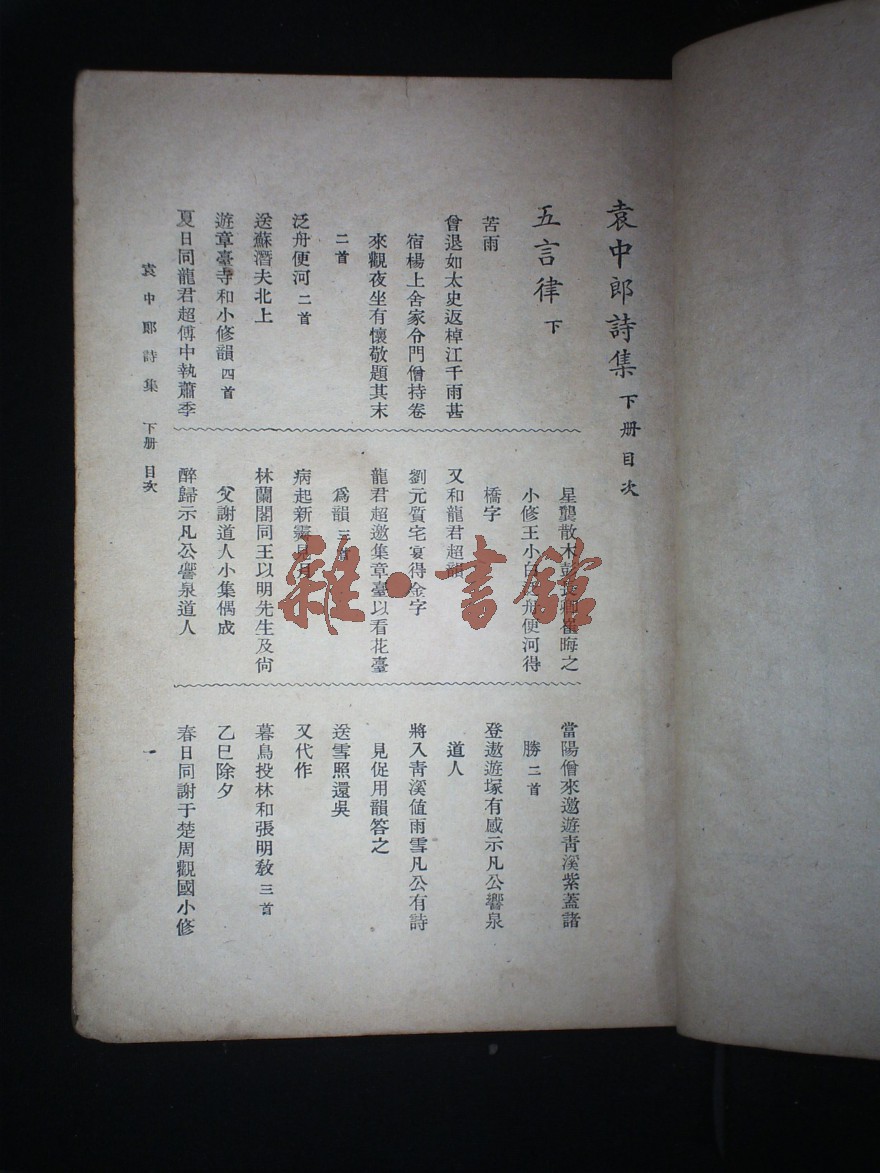 袁中郎詩集 下册目次
五言律 下
苦雨
曾退如太史返棹江干雨甚
宿楊上舍家令門僧持卷
來觀夜坐有懷敬題其末
二首
泛舟便河 二首
送蘇潛夫北上
遊章臺寺和小修韻 四首
夏日同龍君超傅中執蕭季
星龔散木彭長卿崔晦之
小修王小白泛舟便河得
橋字
又和龍君超韻
劉元質宅宴得金字
龍君超邀集章臺以看花臺
爲韻 三首
病起新霽見月
林蘭閣同王以明先生及尙
父謝道人小集偶成
醉歸示凡公響泉道人
當陽僧來邀遊靑溪紫蓋諸
勝 二首
登遨遊塚有感示凡公響泉
道人
將入靑溪値雨雪凡公有詩
見促用韻答之
送雪照還吳
又代作
暮鳥投林和張明敎 三首
乙巳除夕
春日同謝于楚周觀國小修
袁中郎詩集 下册 目次
一
雜·書館